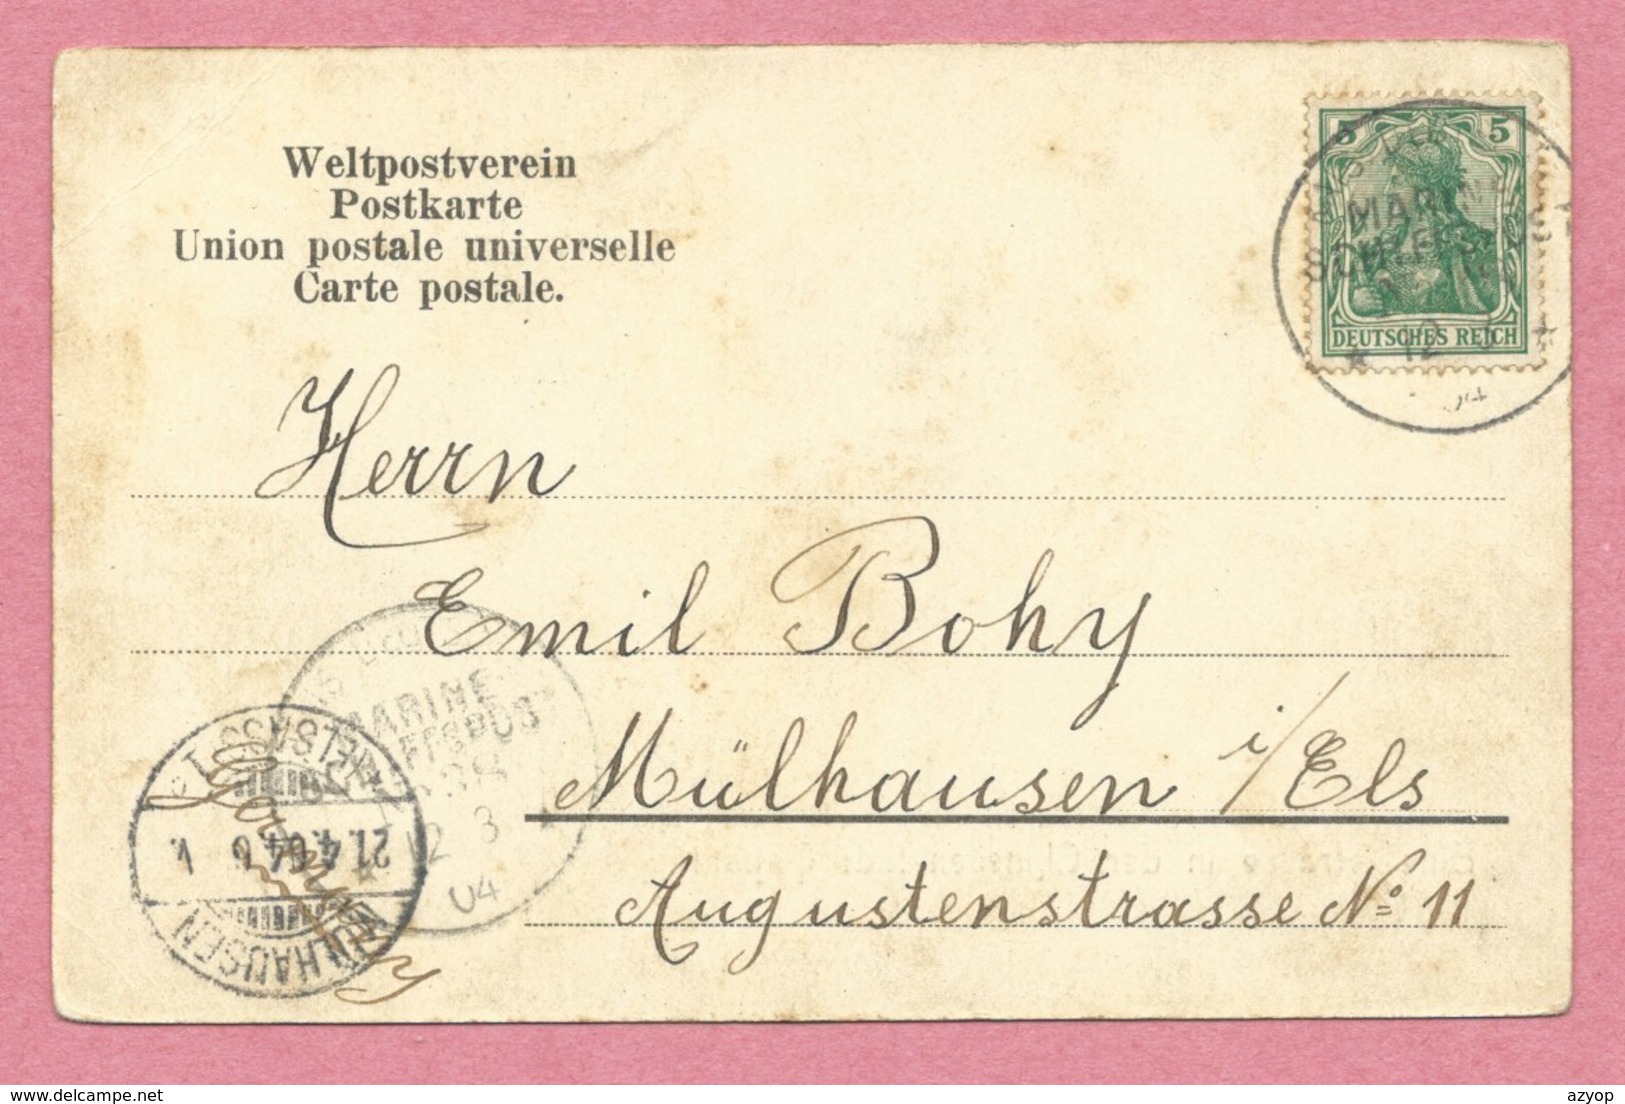 Weltpostverein
Postkarte
Union postale universelle
Carte postale.
5 5
DEUTSCHES REICH
MARINE
12
Herrn
Emil Bohy
Mülhausen i/Els
Augustenstrasse No 11
MARINE
SCHIFFSPOST
No 38
12 3
04
MÜLHAUSEN
21.4.04
azyop